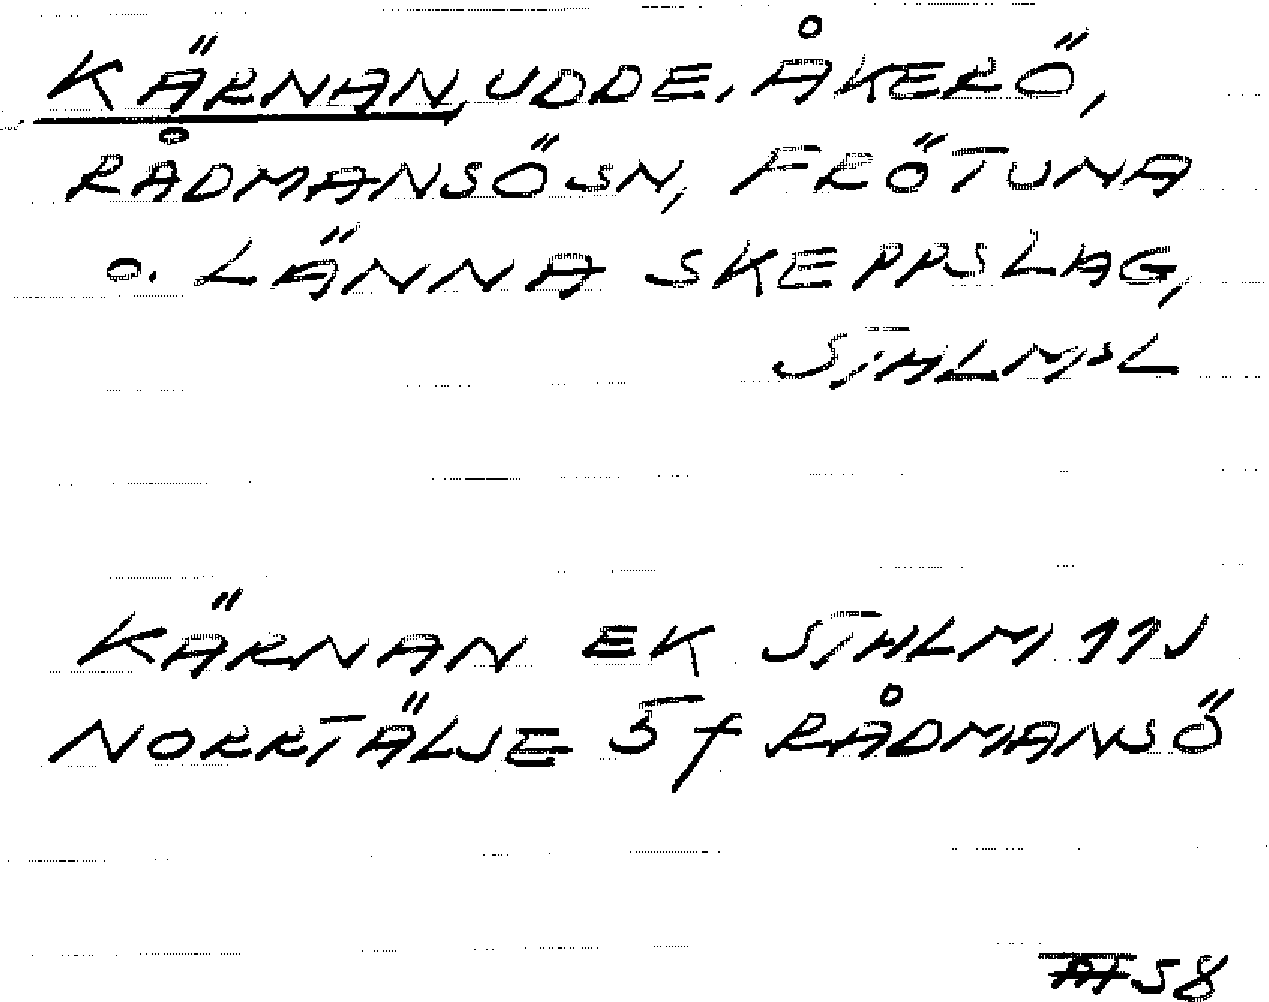 KÄRNAN, UDDE, ÅKERÖ,
RÅDMANSÖ SN, FRÖTUNA
o. LÄNNA SKEPPSLAG,
STHLMSL
KÄRNAN EK STHLM 11J
NORRTÄLJE 5f RÅDMANSÖ
58